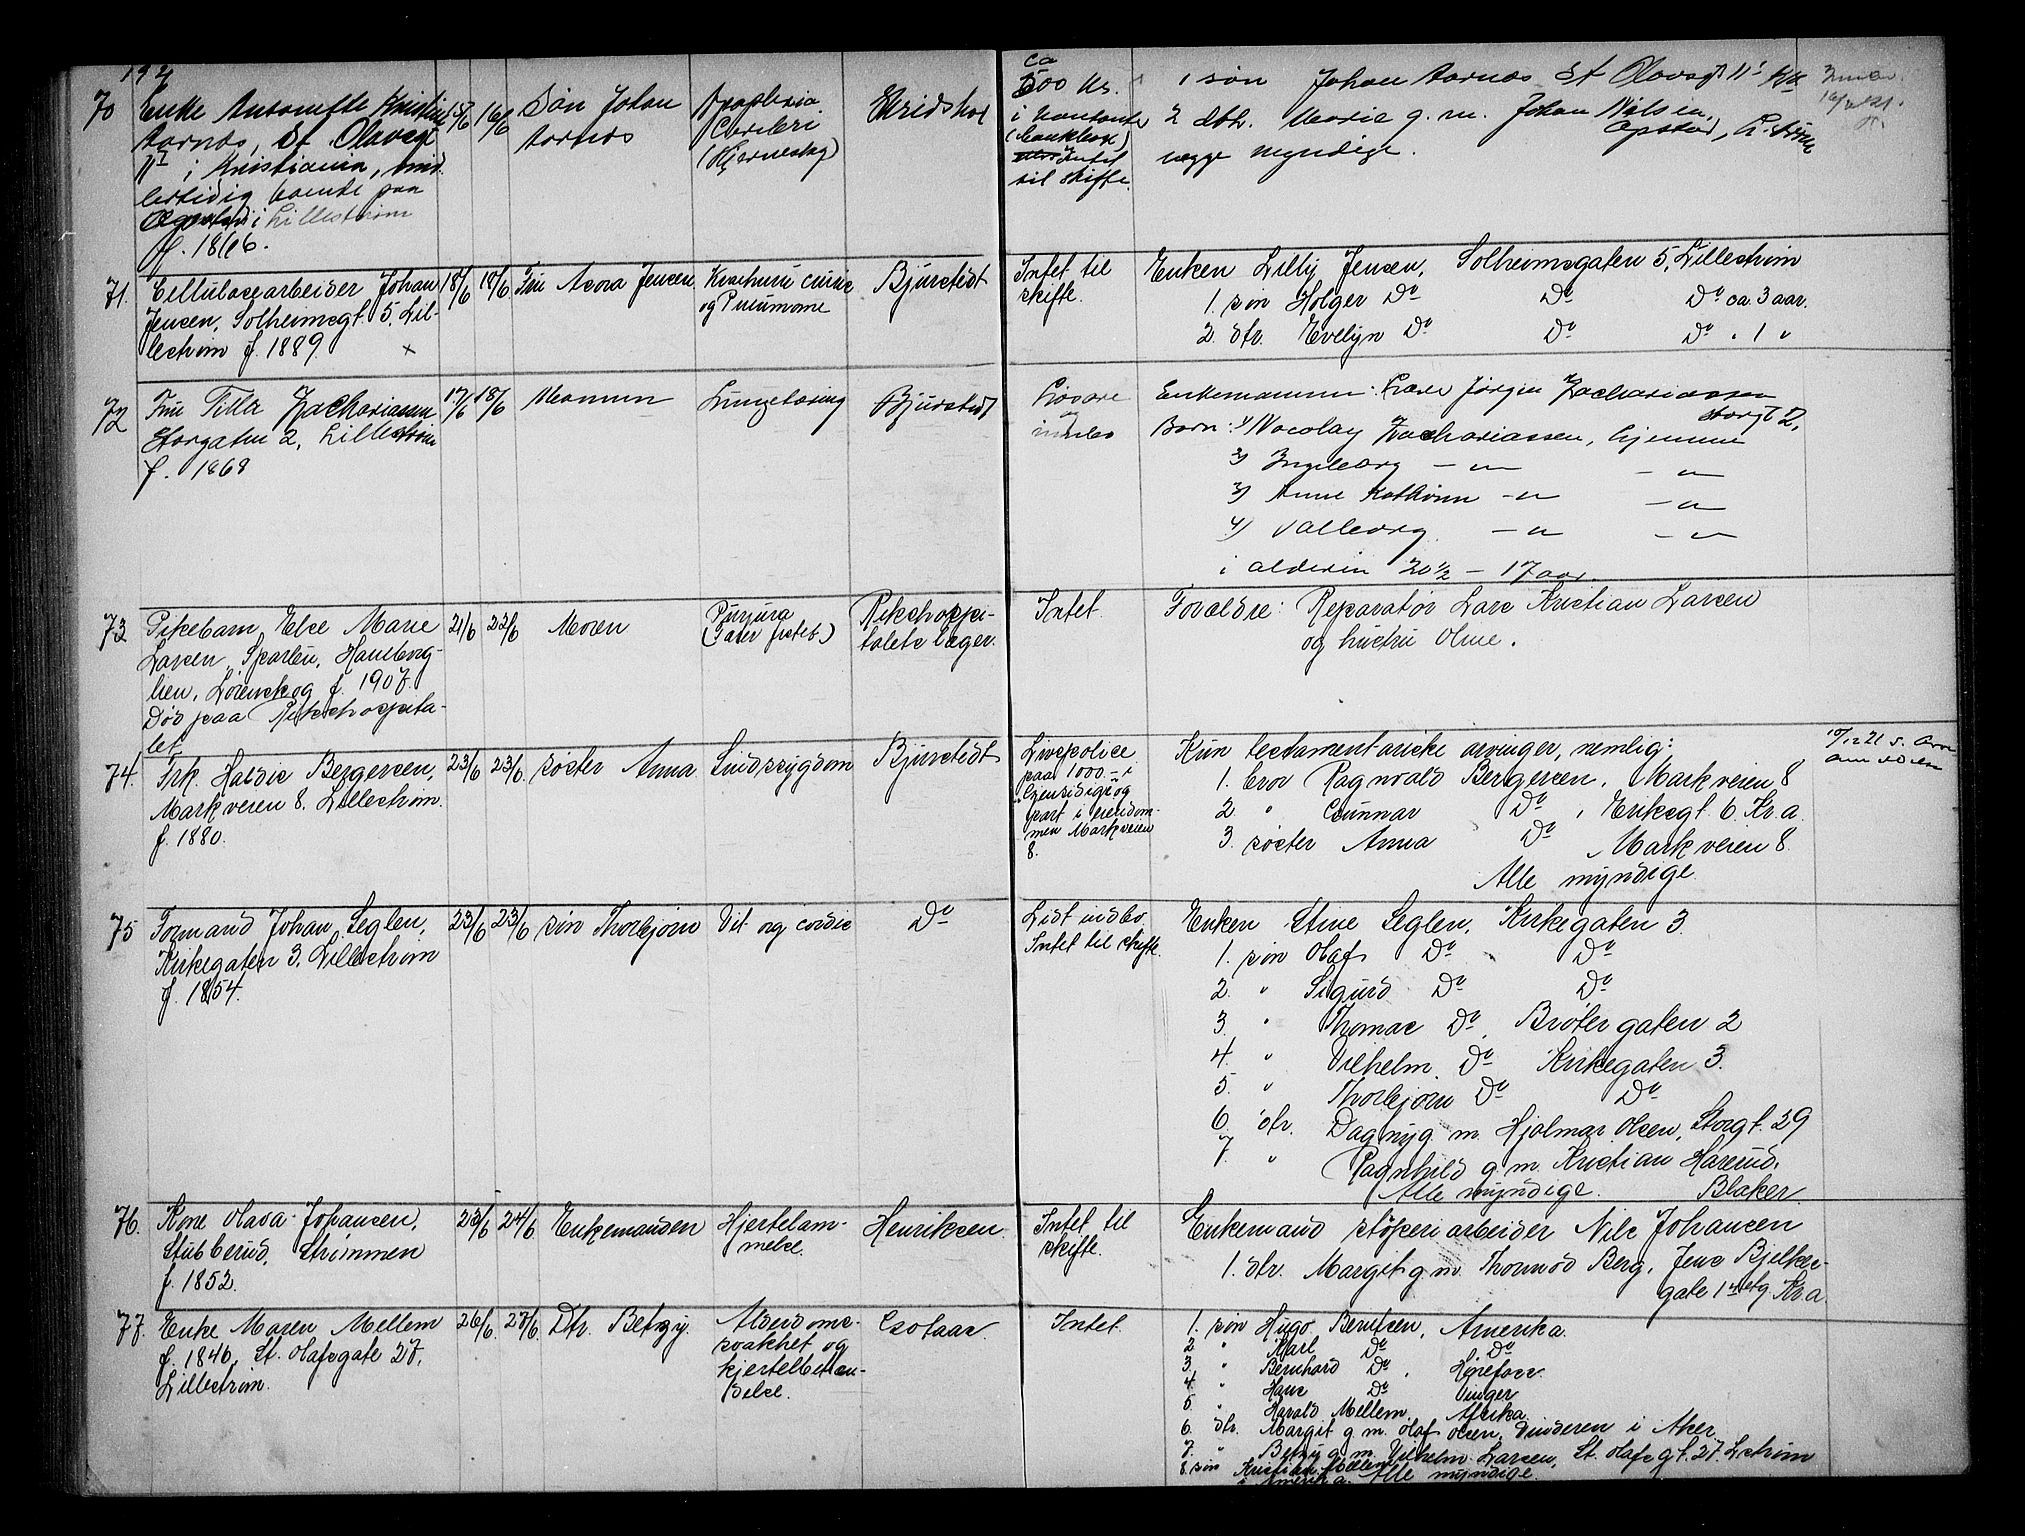 70
Enke Antonette Kristine
Aarnæs, St Olavsgt
11 i Kristiania, mid-
lertidig boende paa
i Lillestrøm
f. 1866.
15/6 16/6
Søn Johan
Aarnæs
Apoplexia
Cerebri
(Hjerneslag)
ca
500 kr.
i kontanter
(bankbok)
Intet
til skifte
1 søn Johan Aarnæs St Olavsgt 11
2 dtr. Marie g. m. Johan Nilsen,
begge myndige.
71.
Cellulosearbeider Johan
Jensen, Solheimsgt. 5, Lil-
lestrøm f. 1889.
x
18/6 18/6
Fru Aasra Jensen
og Pneumonie
Bjurstedt
Intet til
skifte.
Enken Lilly Jensen, Solheimsgaten 5, Lillestrøm
1. søn Holger Do Do Do ca 3 aar.
2. dtr. Evelyn Do Do Do " 1 "
72
Fru Tilla Zachariassen
Storgaten 2, Lillestrøm
f. 1868
17/6 18/6
Mannen
Lungetæring
Bjurstedt
Løsøre
og
indbo
Enkemannen: Lars Jørgen Zachariassen
Storgt 2,
Barn: 1) Nicolay Zachariassen, hjemme
2) Ingeborg — " — "
3) Anne Kathrine — " — "
4) Valborg — " — "
i alderen 20½ – 17 aar.
73
Pikebarn Else Marie
Larsen, Sparbu, Hamborg-
lien, Lørenskog f. 1907.
Død paa Rikshospita-
let
21/6 22/6
Moren
Purpura
Rikshospi-
talets læger.
Intet.
Forældre: Reparatør Lars Kristian Larsen
og hustru Oline.
74.
Frk. Haldis Bergersen,
Markveien 8. Lillestrøm.
f. 1880.
23/6 23/6.
søster Anna
Sindssygdom
Bjurstedt
Livspolice
paa 1000.– i
"Gjensidige" og
part i eiendom-
men Markveien
8.
Kun testamentariske arvinger, nemlig:
1. bror Ragnvald Bergersen, Markveien 8
2. " Gunnar Do, Eriksgt. 6. Kr.a.
3. søster Anna Do Markveien 8.
Alle myndige.
75
Formand Johan Seglen,
Kirkegaten 3, Lillestrøm
f. 1854.
23/6 23/6
søn Thorbjørn
Vit. org cordis
Do
Lidt indbo.
Intet til skifte.
Enken Stine Seglen, Kirkegaten 3.
1. søn Olaf Do Do
2. " Sigurd Do Do
3. " Thomas Do Brøtergaten 2
4. " Vilhelm Do Kirkegaten 3.
5. " Thorbjørn Do Do
6. dtr. Dagny g. m. Hjalmar Olsen, Storgt. 29
7. " Ragnhild g. m. Kristian Harerud,
Alle myndige. Blaker
76.
Kone Olava Johansen,
Stubberud, Strømmen
f. 1852.
23/6 24/6.
Enkemanden
Hjertelam-
melse.
Henriksen.
Intet til
skifte.
Enkemand støperiarbeider Nils Johansen
1. dtr. Margit g. m. Thormod Berg, Jens Bjelkes-
gate 1 etg Kr.a.
77.
Enke Maren Mellem
f. 1840, St. Olafsgate 27.
Lillestrøm.
26/6. 27/6.
Dtr. Betzy.
Alderdoms-
svakhet og
kjertelbetæn-
delse.
Intet.
1. søn Hugo Berntsen, Amerika.
2 " Karl Do Do
3. " Bernhard Do, Hønefoss.
4. " Hans Do Vinger
5 " Harald Mellem, Afrika
6. dtr. Margit g. m. Olaf Olsen, Vinderen i Aker
7. " Betzy g. m. Vilhelm Larsen, St. Olafsgt. 27. L.strøm
8. søn Kristian Mellem
i Amerika. Alle myndige.